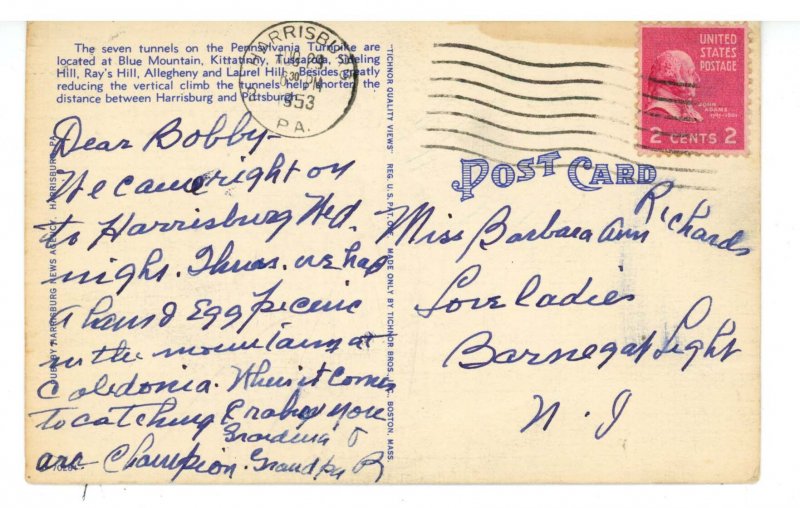 The seven tunnels on the Pennsylvania Turnpike are
located at Blue Mountain, Kittatinny, Tuscarora, Sideling
Hill, Ray's Hill, Allegheny and Laurel Hill. Besides greatly
reducing the vertical climb the tunnels help shorten the
distance between Harrisburg and Pittsburgh.
Dear Bobby-
We came right on
to Harrisburg Wed.
night. Thurs. we had
a ham & Egg picnic
in the mountains at
Caledonia. When it comes
to catching Crabs you
are Champion.
Grandma &
Grandpa R
PUB. BY HARRISBURG NEWS AGENCY, HARRISBURG, PA.
"TICHNOR QUALITY VIEWS" REG. U.S. PAT. OFF. MADE ONLY BY TICHNOR BROS., INC., BOSTON, MASS.
HARRISBURG
30 PM
1953
PA.
UNITED
STATES
POSTAGE
JOHN
ADAMS
2 CENTS 2
POST CARD
Miss Barbara Ann Richards
Loveladies
Barnegat Light
N. J